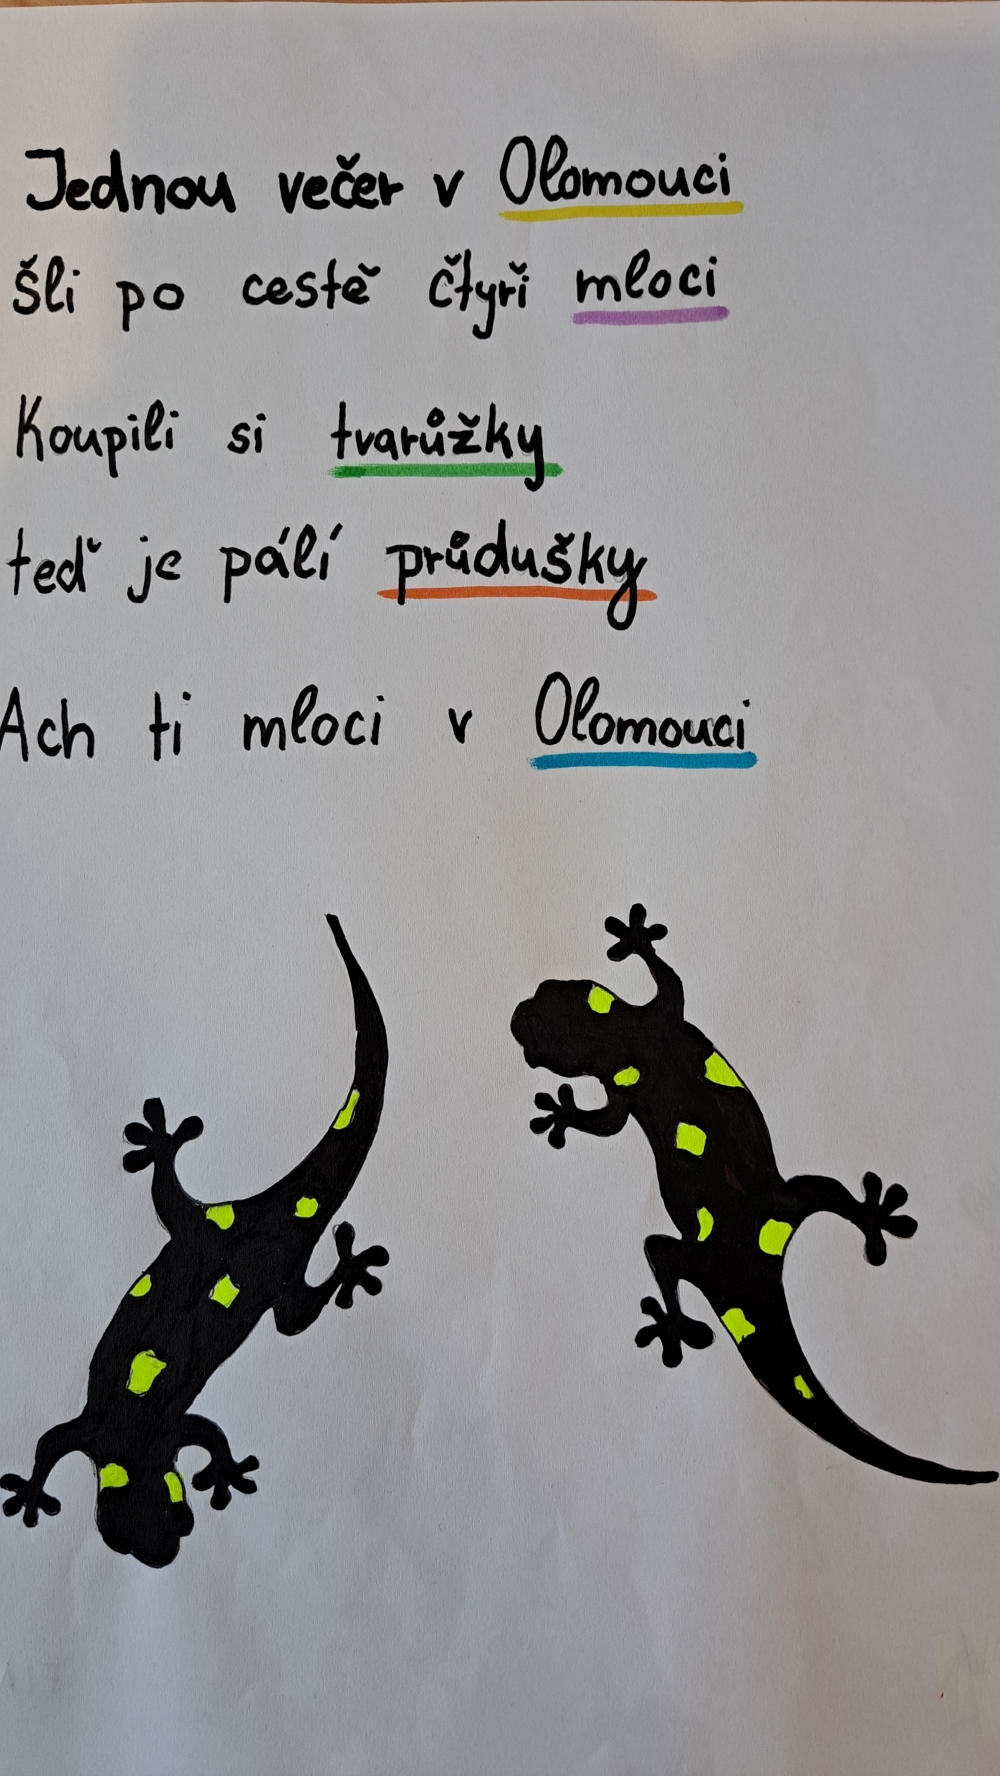 Jednou večer v Olomouci
šli po cestě čtyři mloci
Koupili si tvarůžky
teď je pálí průdušky
Ach ti mloci v Olomouci